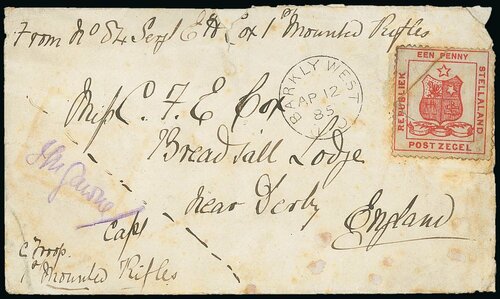 From No 84 Sergt E H Cox 1st Mounted Rifles
BARKLY WEST
AP 12
85
EEN PENNY
REPUBLIEK
STELLALAND
POSTZEGEL
Miss C. F. E Cox
Breadsall Lodge
near Derby
England
Capt
C Troop
1st Mounted Rifles